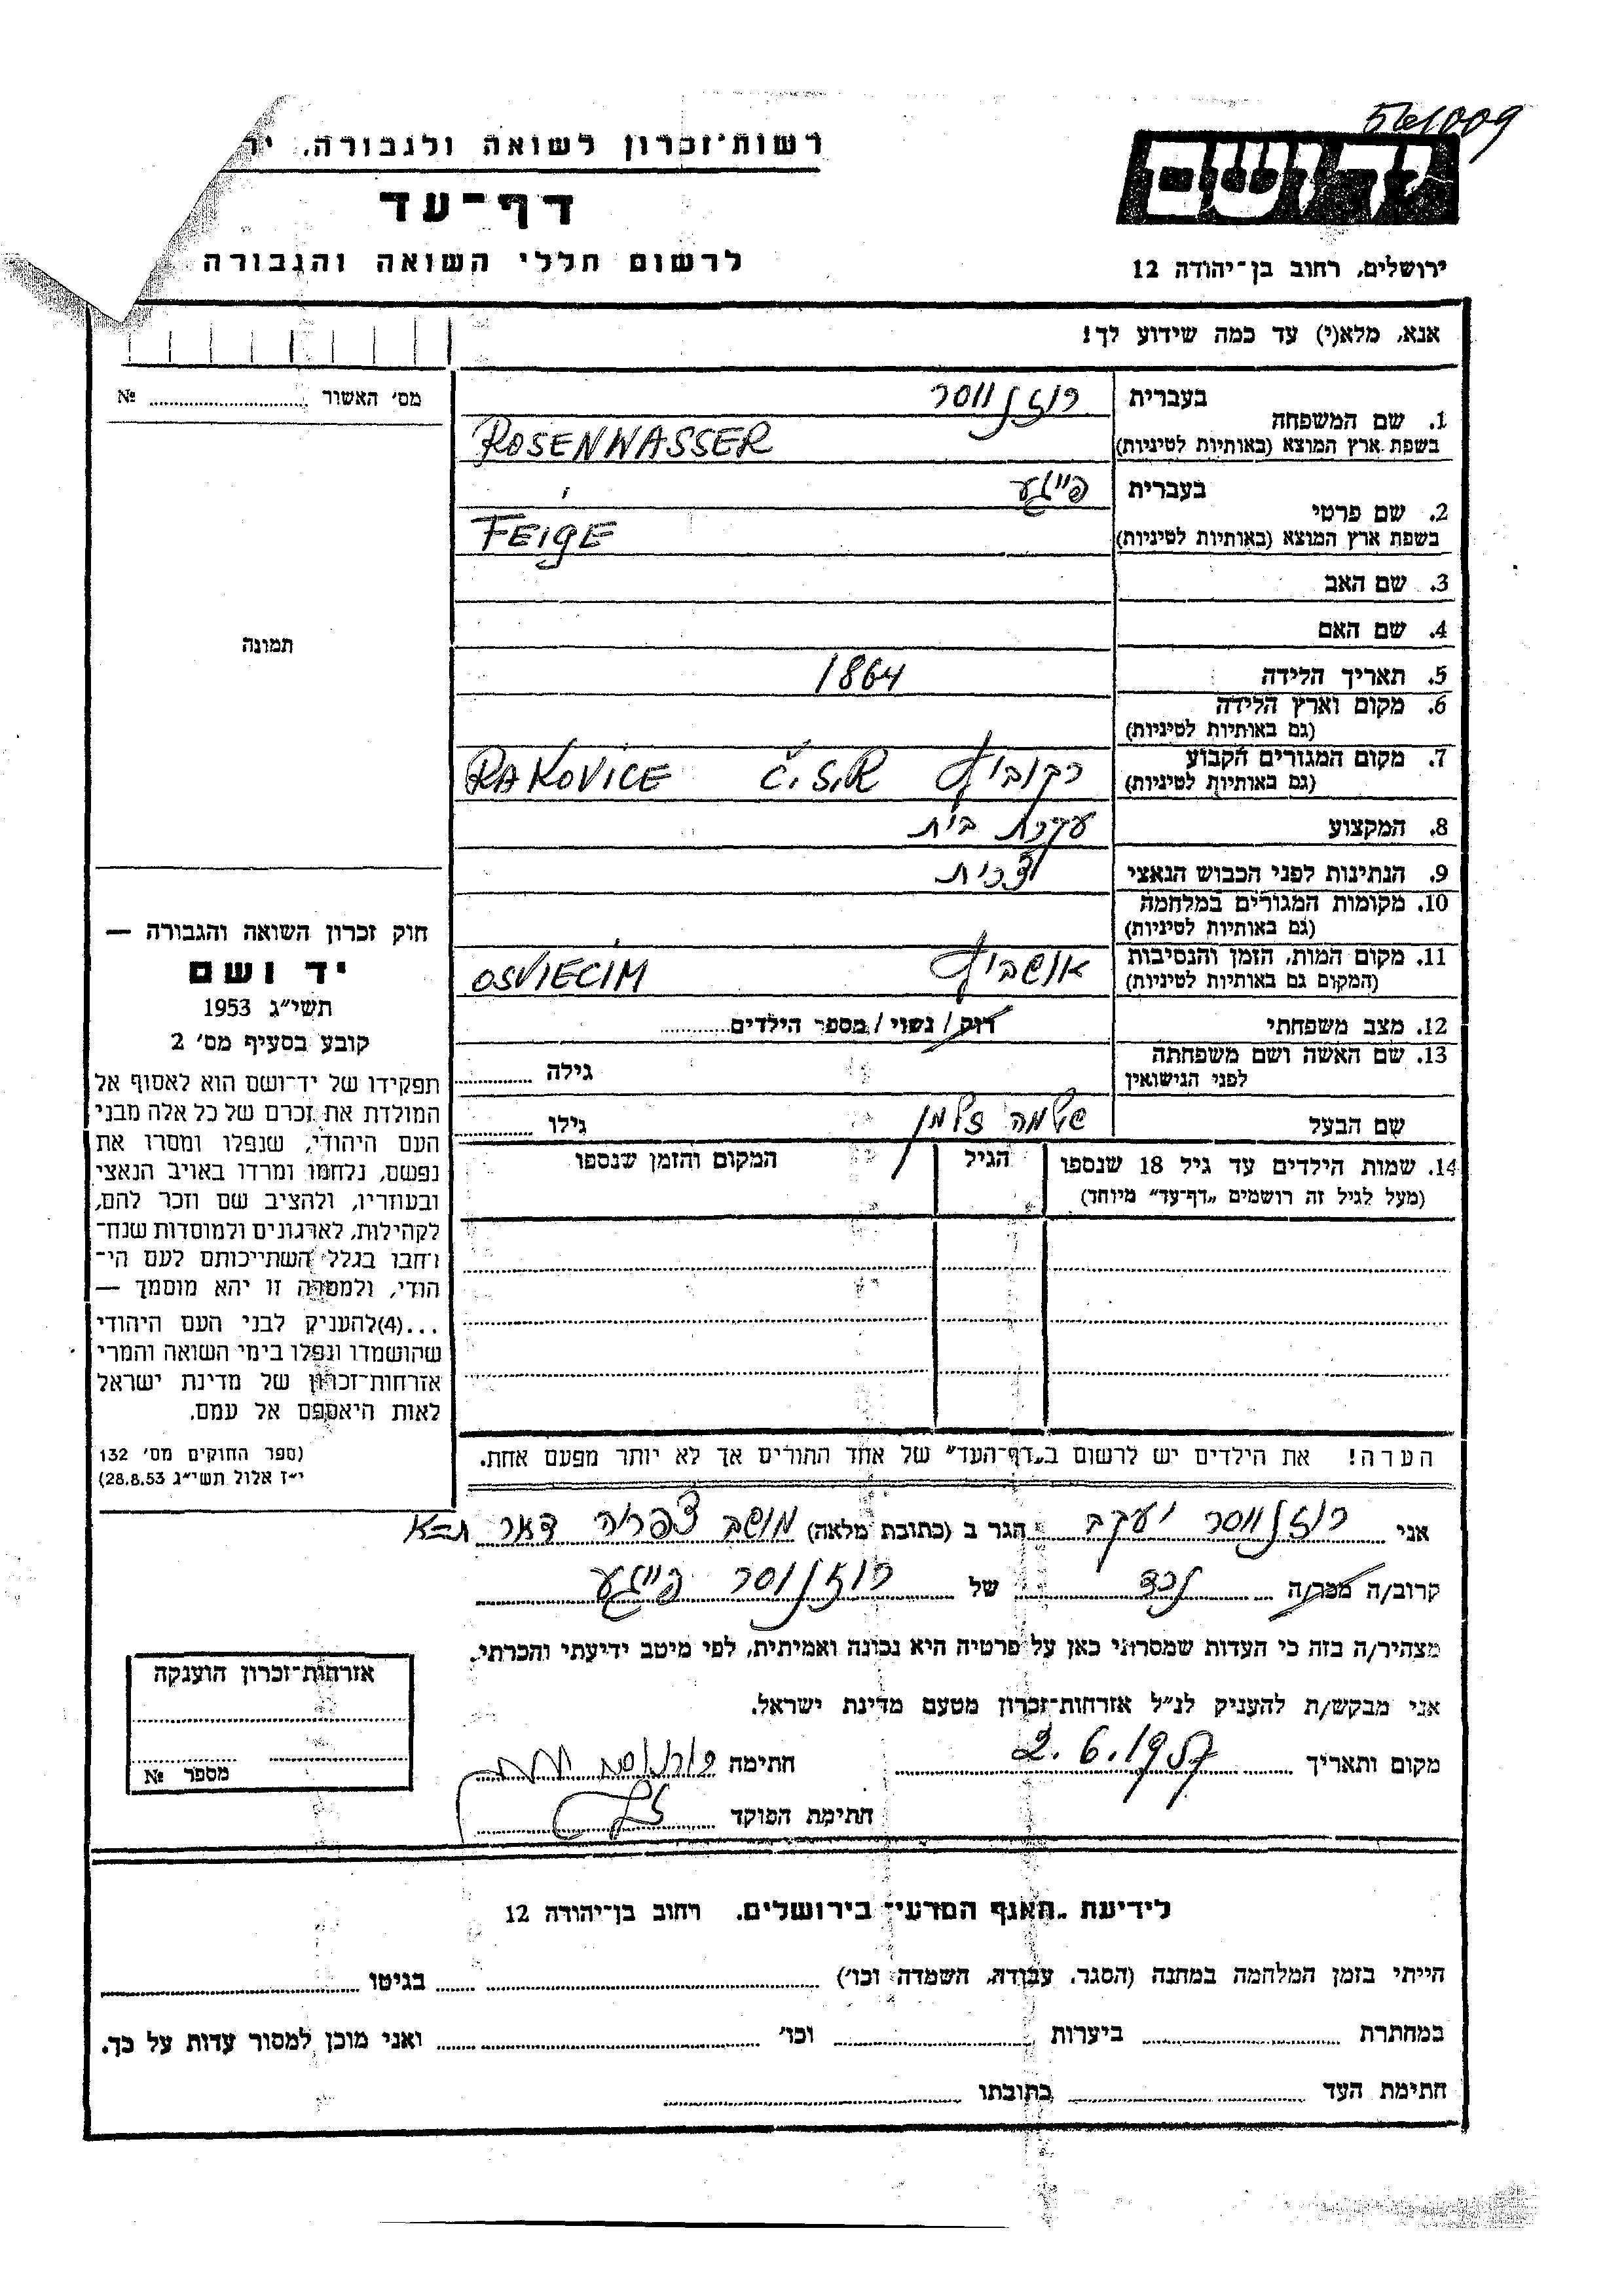 561009
רשות־זכרון לשואה ולגבורה,
יד ושם
דף־עד
לרשום חללי השואה והגבורה
ירושלים, רחוב בן־יהודה 12
אנא, מלא(י) עד כמה שידוע לך!
מס׳ האשור № 
1. שם המשפחה
בעברית רוזנווסר
בשפת ארץ המוצא (באותיות לטיניות) ROSENWASSER
2. שם פרטי
בעברית פייגע
בשפת ארץ המוצא (באותיות לטיניות) FEIGE
3. שם האב
4. שם האם
תמונה
5. תאריך הלידה 1864
6. מקום וארץ הלידה
(גם באותיות לטיניות)
7. מקום המגורים הקבוע
(גם באותיות לטיניות) רקוביץ Č.S.R RAKOVICE
8. המקצוע עקרת בית
9. הנתינות לפני הכבוש הנאצי
10. מקומות המגורים במלחמה
(גם באותיות לטיניות)
11. מקום המות, הזמן והנסיבות
(המקום גם באותיות לטיניות) אושביץ OSVIECIM
12. מצב משפחתי רוק / נשוי / מספר הילדים
13. שם האשה ושם משפחתה
לפני הנישואין גילה
שם הבעל שלמה זלמן גילו
14. שמות הילדים עד גיל 18 שנספו
(מעל לגיל זה רושמים „דף־עד” מיוחד)
הגיל
המקום והזמן שנספו
חוק זכרון השואה והגבורה —
יד ושם
תשי״ג 1953
קובע בסעיף מס׳ 2
תפקידו של יד־ושם הוא לאסוף אל
המולדת את זכרם של כל אלה מבני
העם היהודי, שנפלו ומסרו את
נפשם, נלחמו ומרדו באויב הנאצי
ובעוזריו, ולהציב שם וזכר להם,
לקהילות, לארגונים ולמוסדות שנח־
רבו בגלל השתייכותם לעם הי־
הודי, ולמטרה זו יהא מוסמך —
...(4)להעניק לבני העם היהודי
שהושמדו ונפלו בימי השואה והמרי
אזרחות־זכרון של מדינת ישראל
לאות היאספם אל עמם.
(ספר החוקים מס׳ 132
י״ז אלול תשי״ג 28.8.53)
הערה! את הילדים יש לרשום ב„דף־העד” של אחד ההורים אך לא יותר מפעם אחת.
אני רוזנווסר יעקב הגר ב (כתובת מלאה) מושב צפריה דאר
קרוב/ה מכר/ה נכד של רוזנווסר פייגע
מצהיר/ה בזה כי העדות שמסרתי כאן על פרטיה היא נכונה ואמיתית, לפי מיטב ידיעתי והכרתי.
אני מבקש/ת להעניק לנ״ל אזרחות־זכרון מטעם מדינת ישראל.
מקום ותאריך 2.6.1957 חתימה
חתימת הפוקד
אזרחות־זכרון הוענקה
מספר №
לידיעת „האגף המדעי” בירושלים. רחוב בן־יהודה 12
הייתי בזמן המלחמה במחנה (הסגר, עבודה, השמדה וכו׳) בגיטו
במחתרת ביערות וכו׳ ואני מוכן למסור עדות על כך.
חתימת העד כתובתו